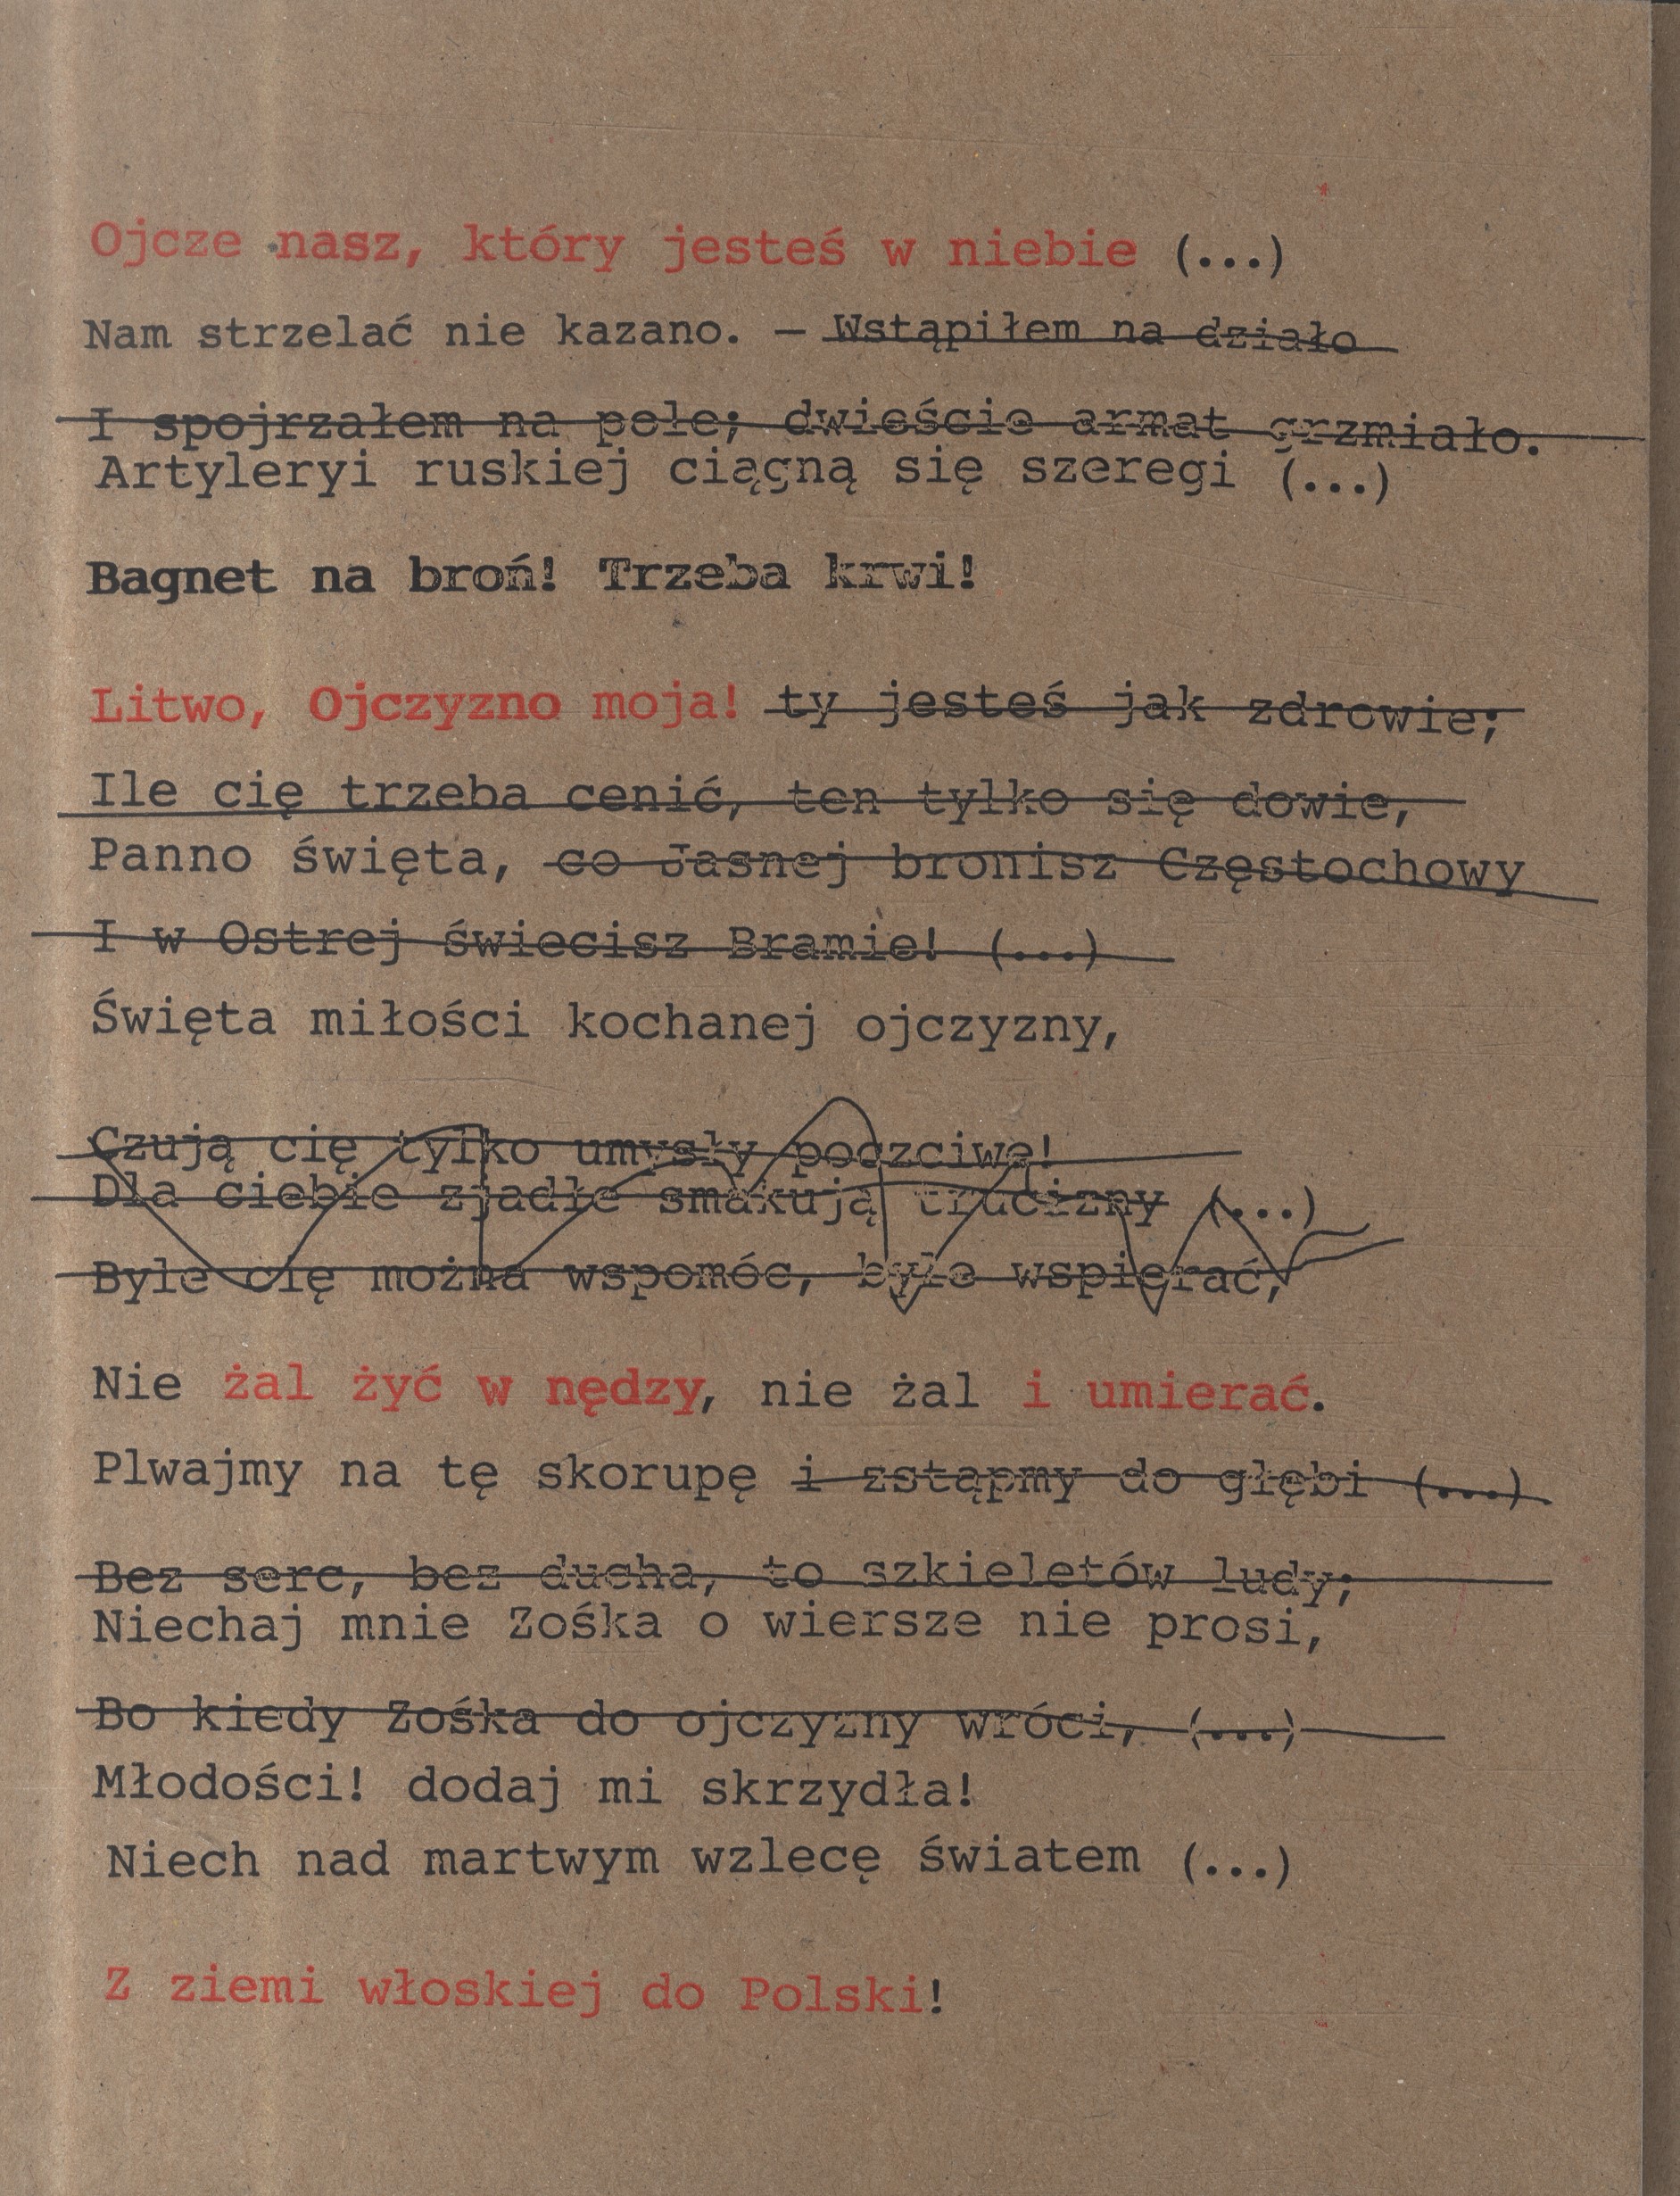 Ojcze nasz, który jesteś w niebie (...)
Nam strzelać nie kazano. – Wstąpiłem na działo
I spojrzałem na pole; dwieście armat grzmiało.
Artyleryi ruskiej ciągną się szeregi (...)
Bagnet na broń! Trzeba krwi!
Litwo, Ojczyzno moja! ty jesteś jak zdrowie;
Ile cię trzeba cenić, ten tylko się dowie,
Panno święta, co Jasnej bronisz Częstochowy
I w Ostrej świecisz Bramie! (...)
Święta miłości kochanej ojczyzny,
Czują cię tylko umysły poczciwe!
Dla ciebie zjadłe smakują trucizny (...)
Byle cię można wspomóc, byle wspierać,
Nie żal żyć w nędzy, nie żal i umierać.
Plwajmy na tę skorupę i zstąpmy do głębi (...)
Bez serc, bez ducha, to szkieletów ludy;
Niechaj mnie Zośka o wiersze nie prosi,
Bo kiedy Zośka do ojczyzny wróci, (...)
Młodości! dodaj mi skrzydła!
Niech nad martwym wzlecę światem (...)
Z ziemi włoskiej do Polski!